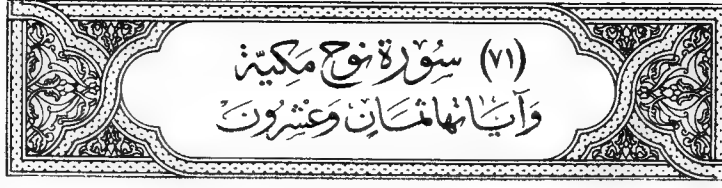 (٧١) سُورَة نوح مَكيَّة
وَآيَاتهَا ثمَانٍ وَعشْرُونَ